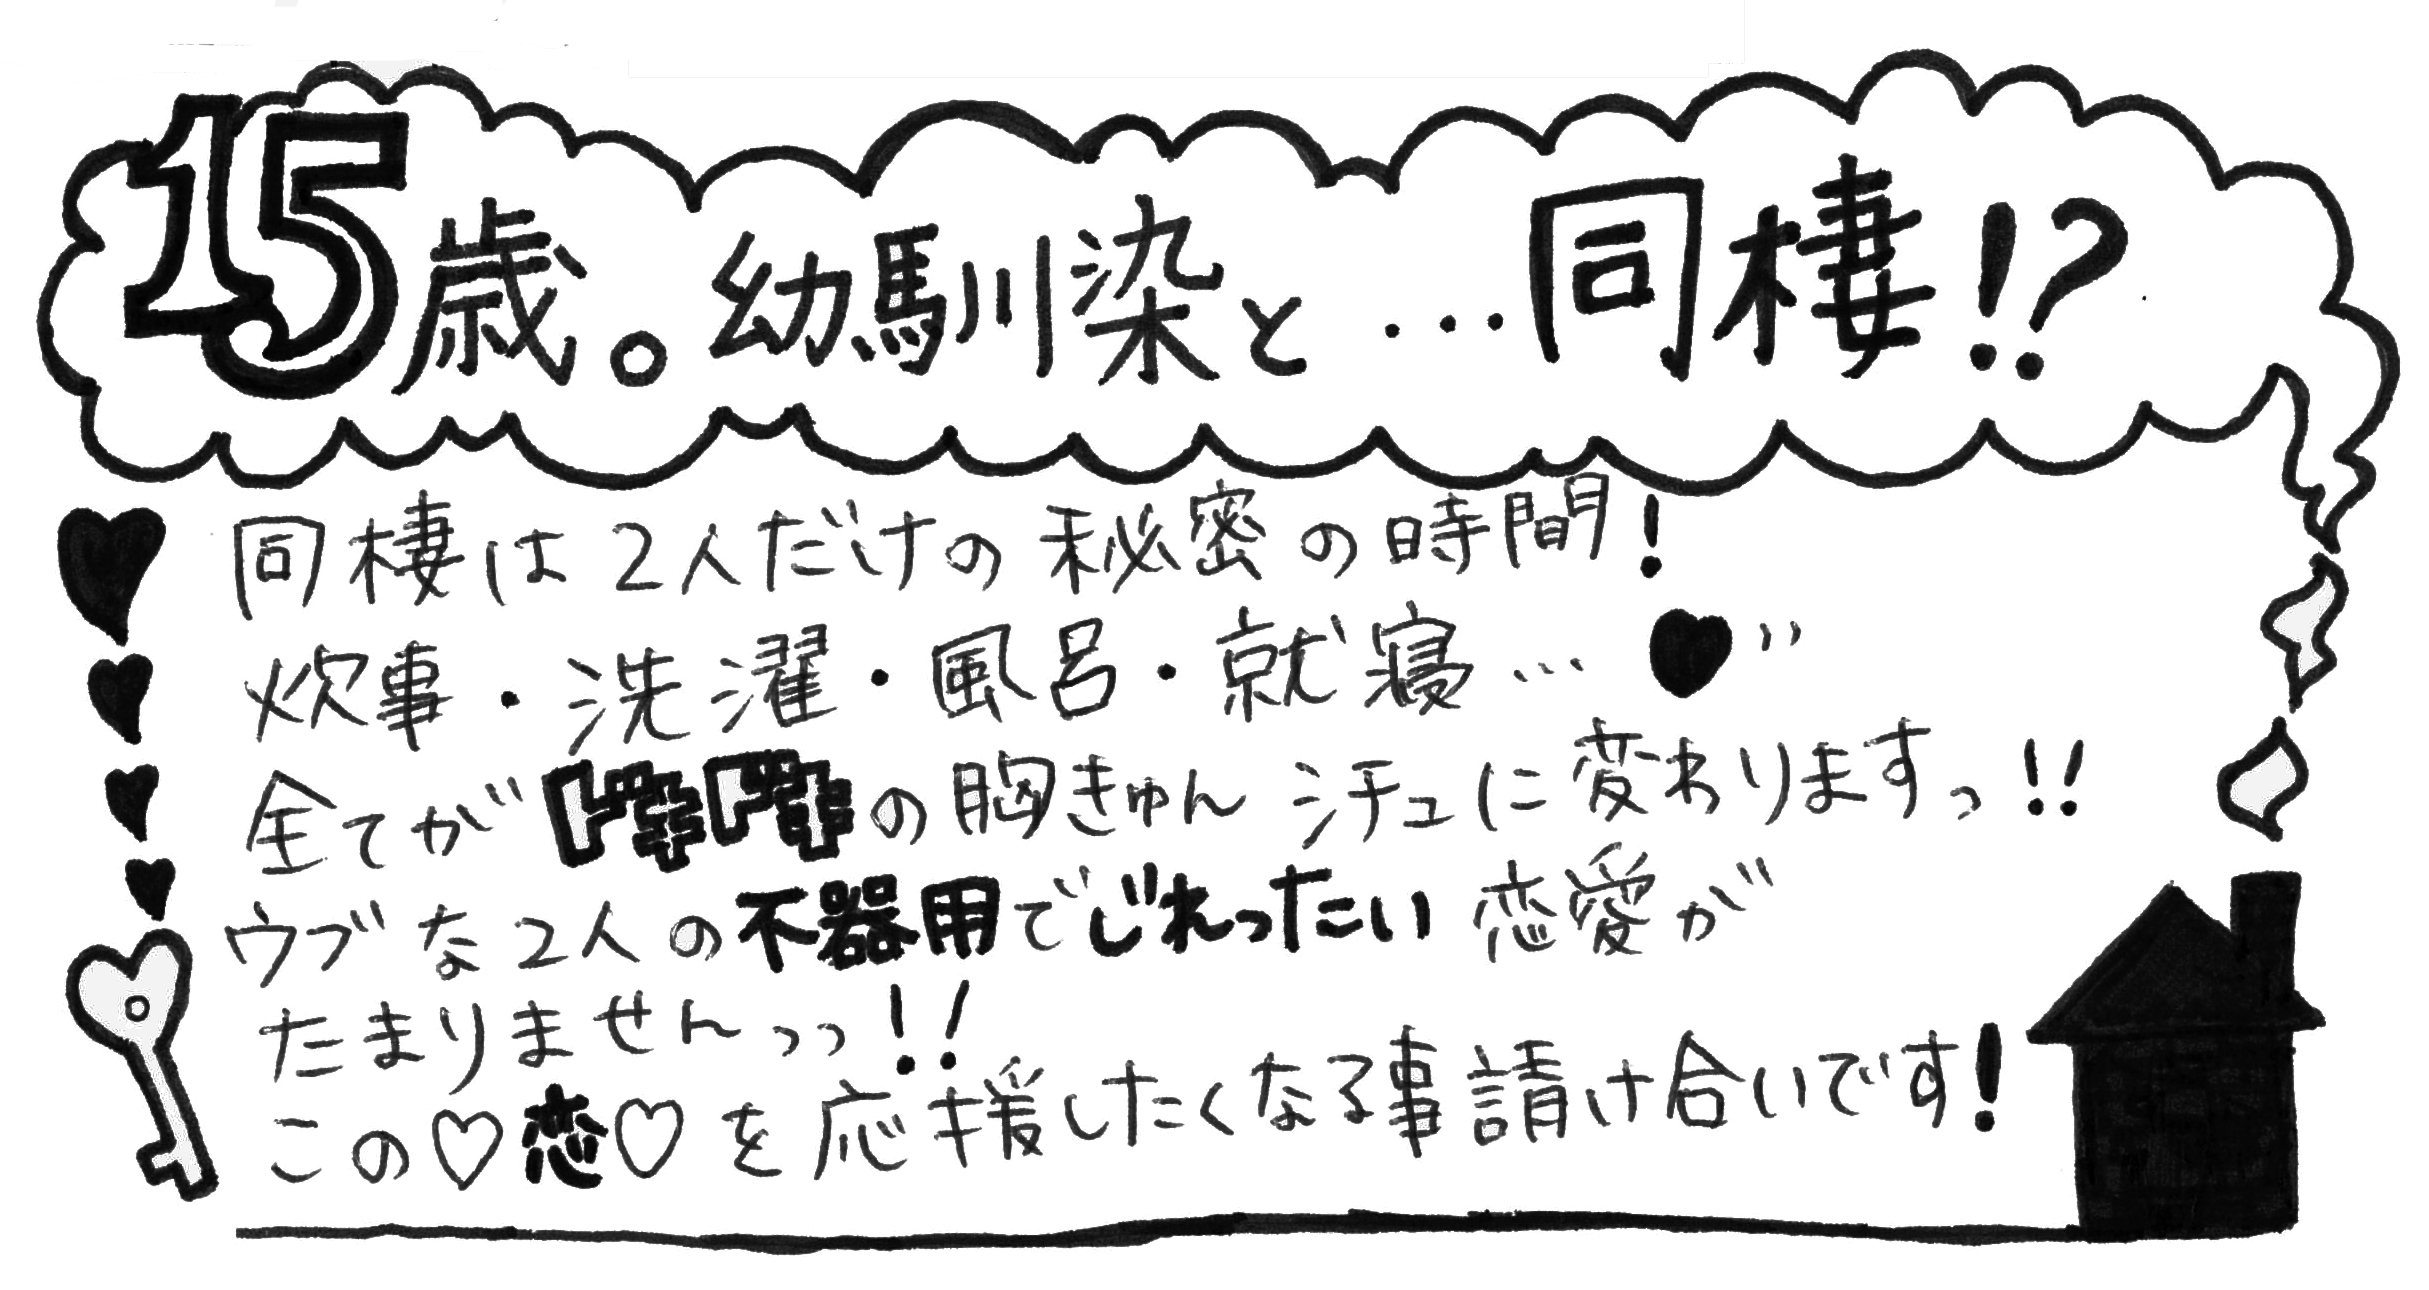 15歳。幼馴染と…同棲!?
同棲は2人だけの秘密の時間!
炊事・洗濯・風呂・就寝…♥
全てがドキドキの胸きゅんシチュに変わりますっ!!
ウブな2人の不器用でじれったい恋愛が
たまりませんっっ!!
この♡恋♡を応援したくなる事請け合いです!